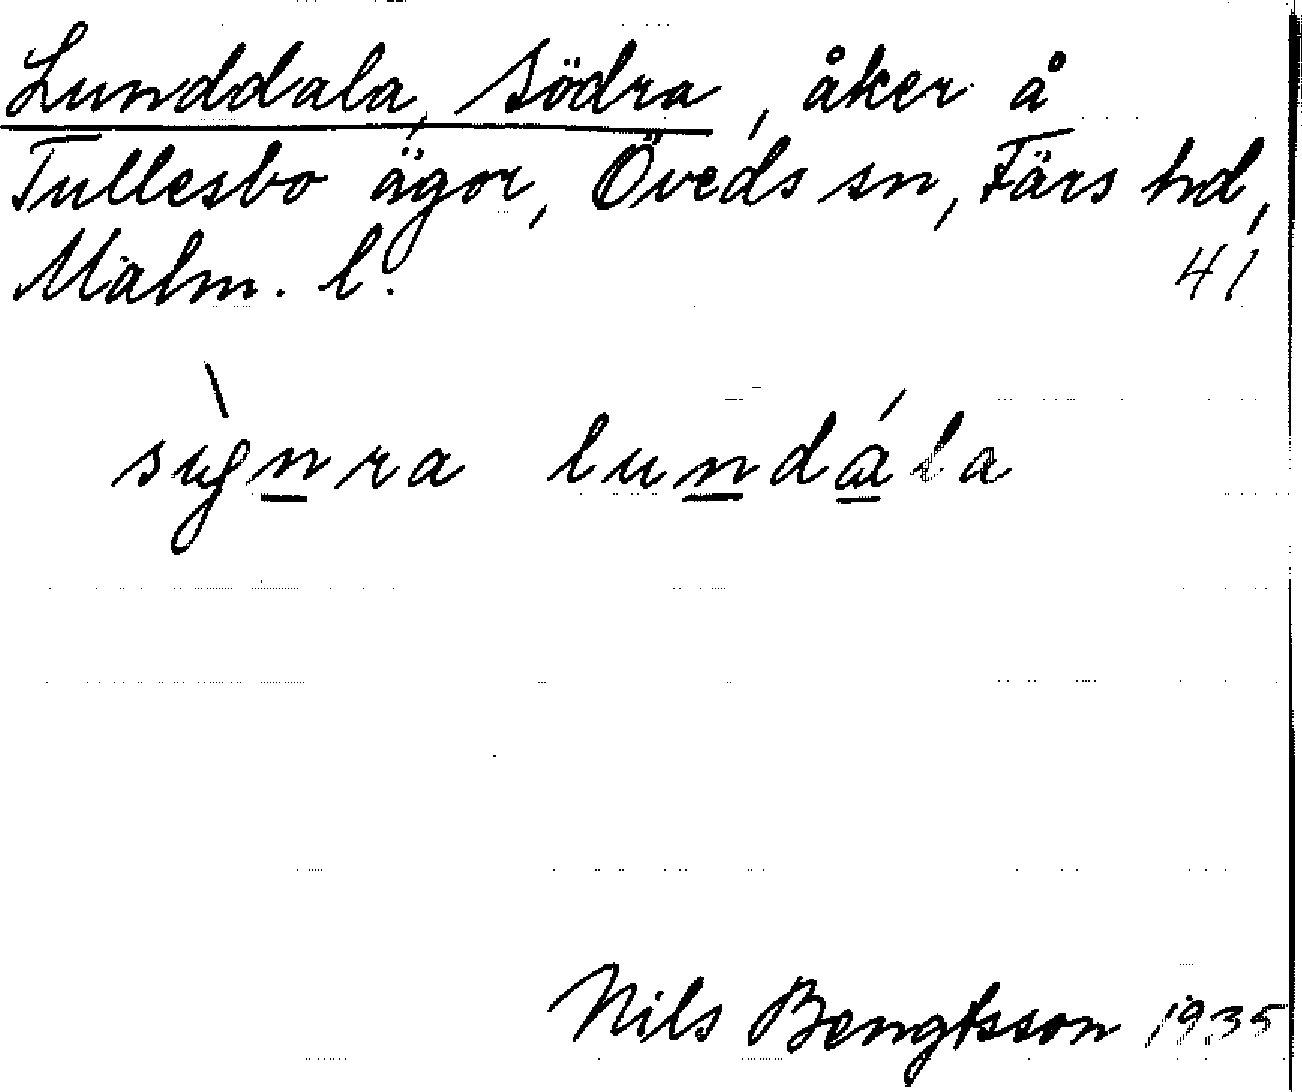 Lunddala, Södra, åker å
Tullesbo ägor, Öveds sn, Färs hd,
Malm. l. 41
lundala
Nils Bengtsson 1935